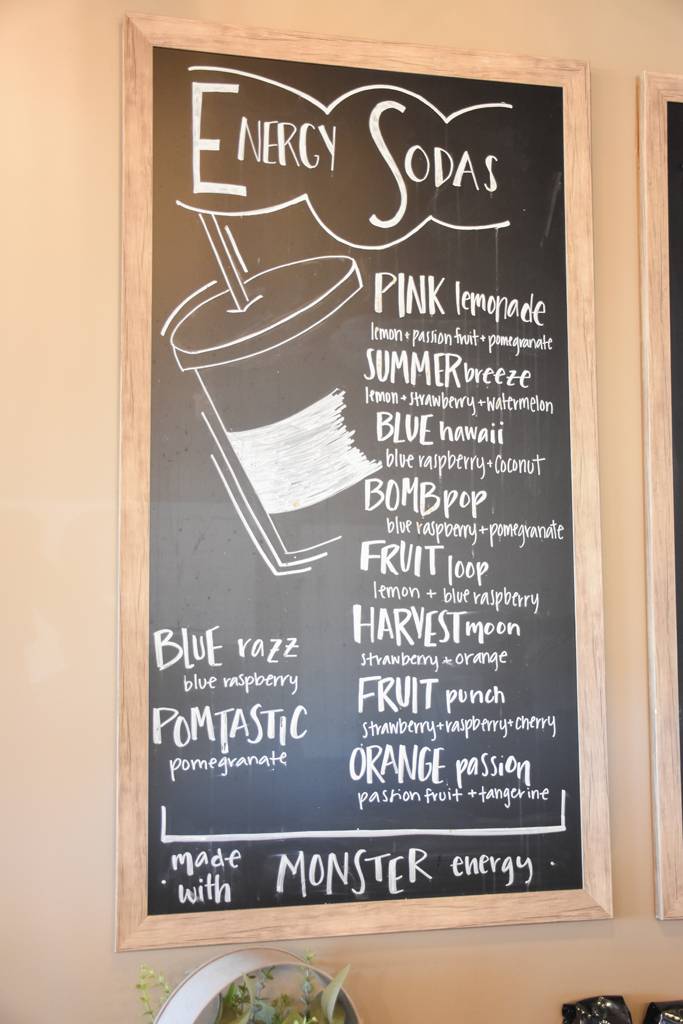 ENERGY SODAS
PINK lemonade
lemon + passion fruit + pomegranate
SUMMER breeze
lemon + strawberry + watermelon
BLUE hawaii
blue raspberry + coconut
BOMB pop
blue raspberry + pomegranate
FRUIT loop
lemon + blue raspberry
HARVEST moon
strawberry + orange
FRUIT punch
strawberry + raspberry + cherry
ORANGE passion
passion fruit + tangerine
BLUE razz
blue raspberry
POMTASTIC
pomegranate
made
with MONSTER energy